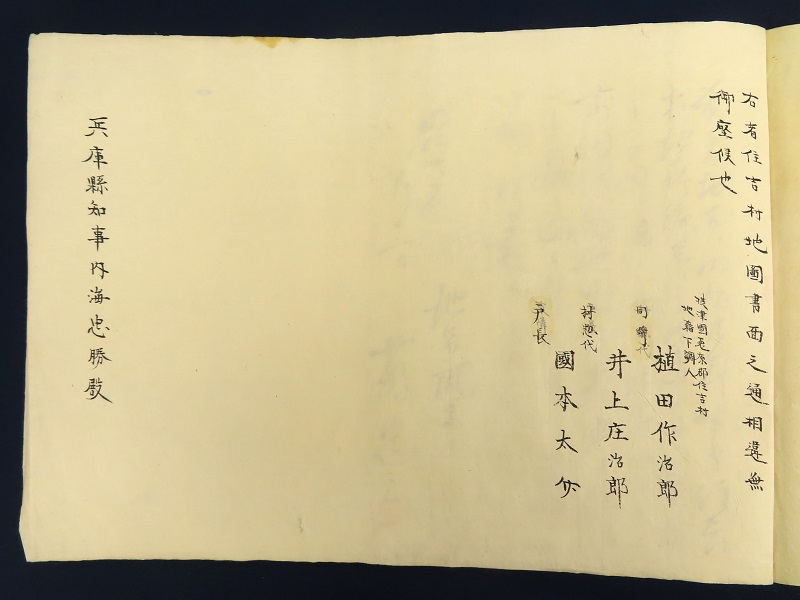 右者住吉村地圖書面之通相違無
御座候也
摂津國菟原郡住吉村
地籍下調人
植田作治郎
井上庄治郎
村惣代
戸長
國本太
兵庫縣知事内海忠勝殿